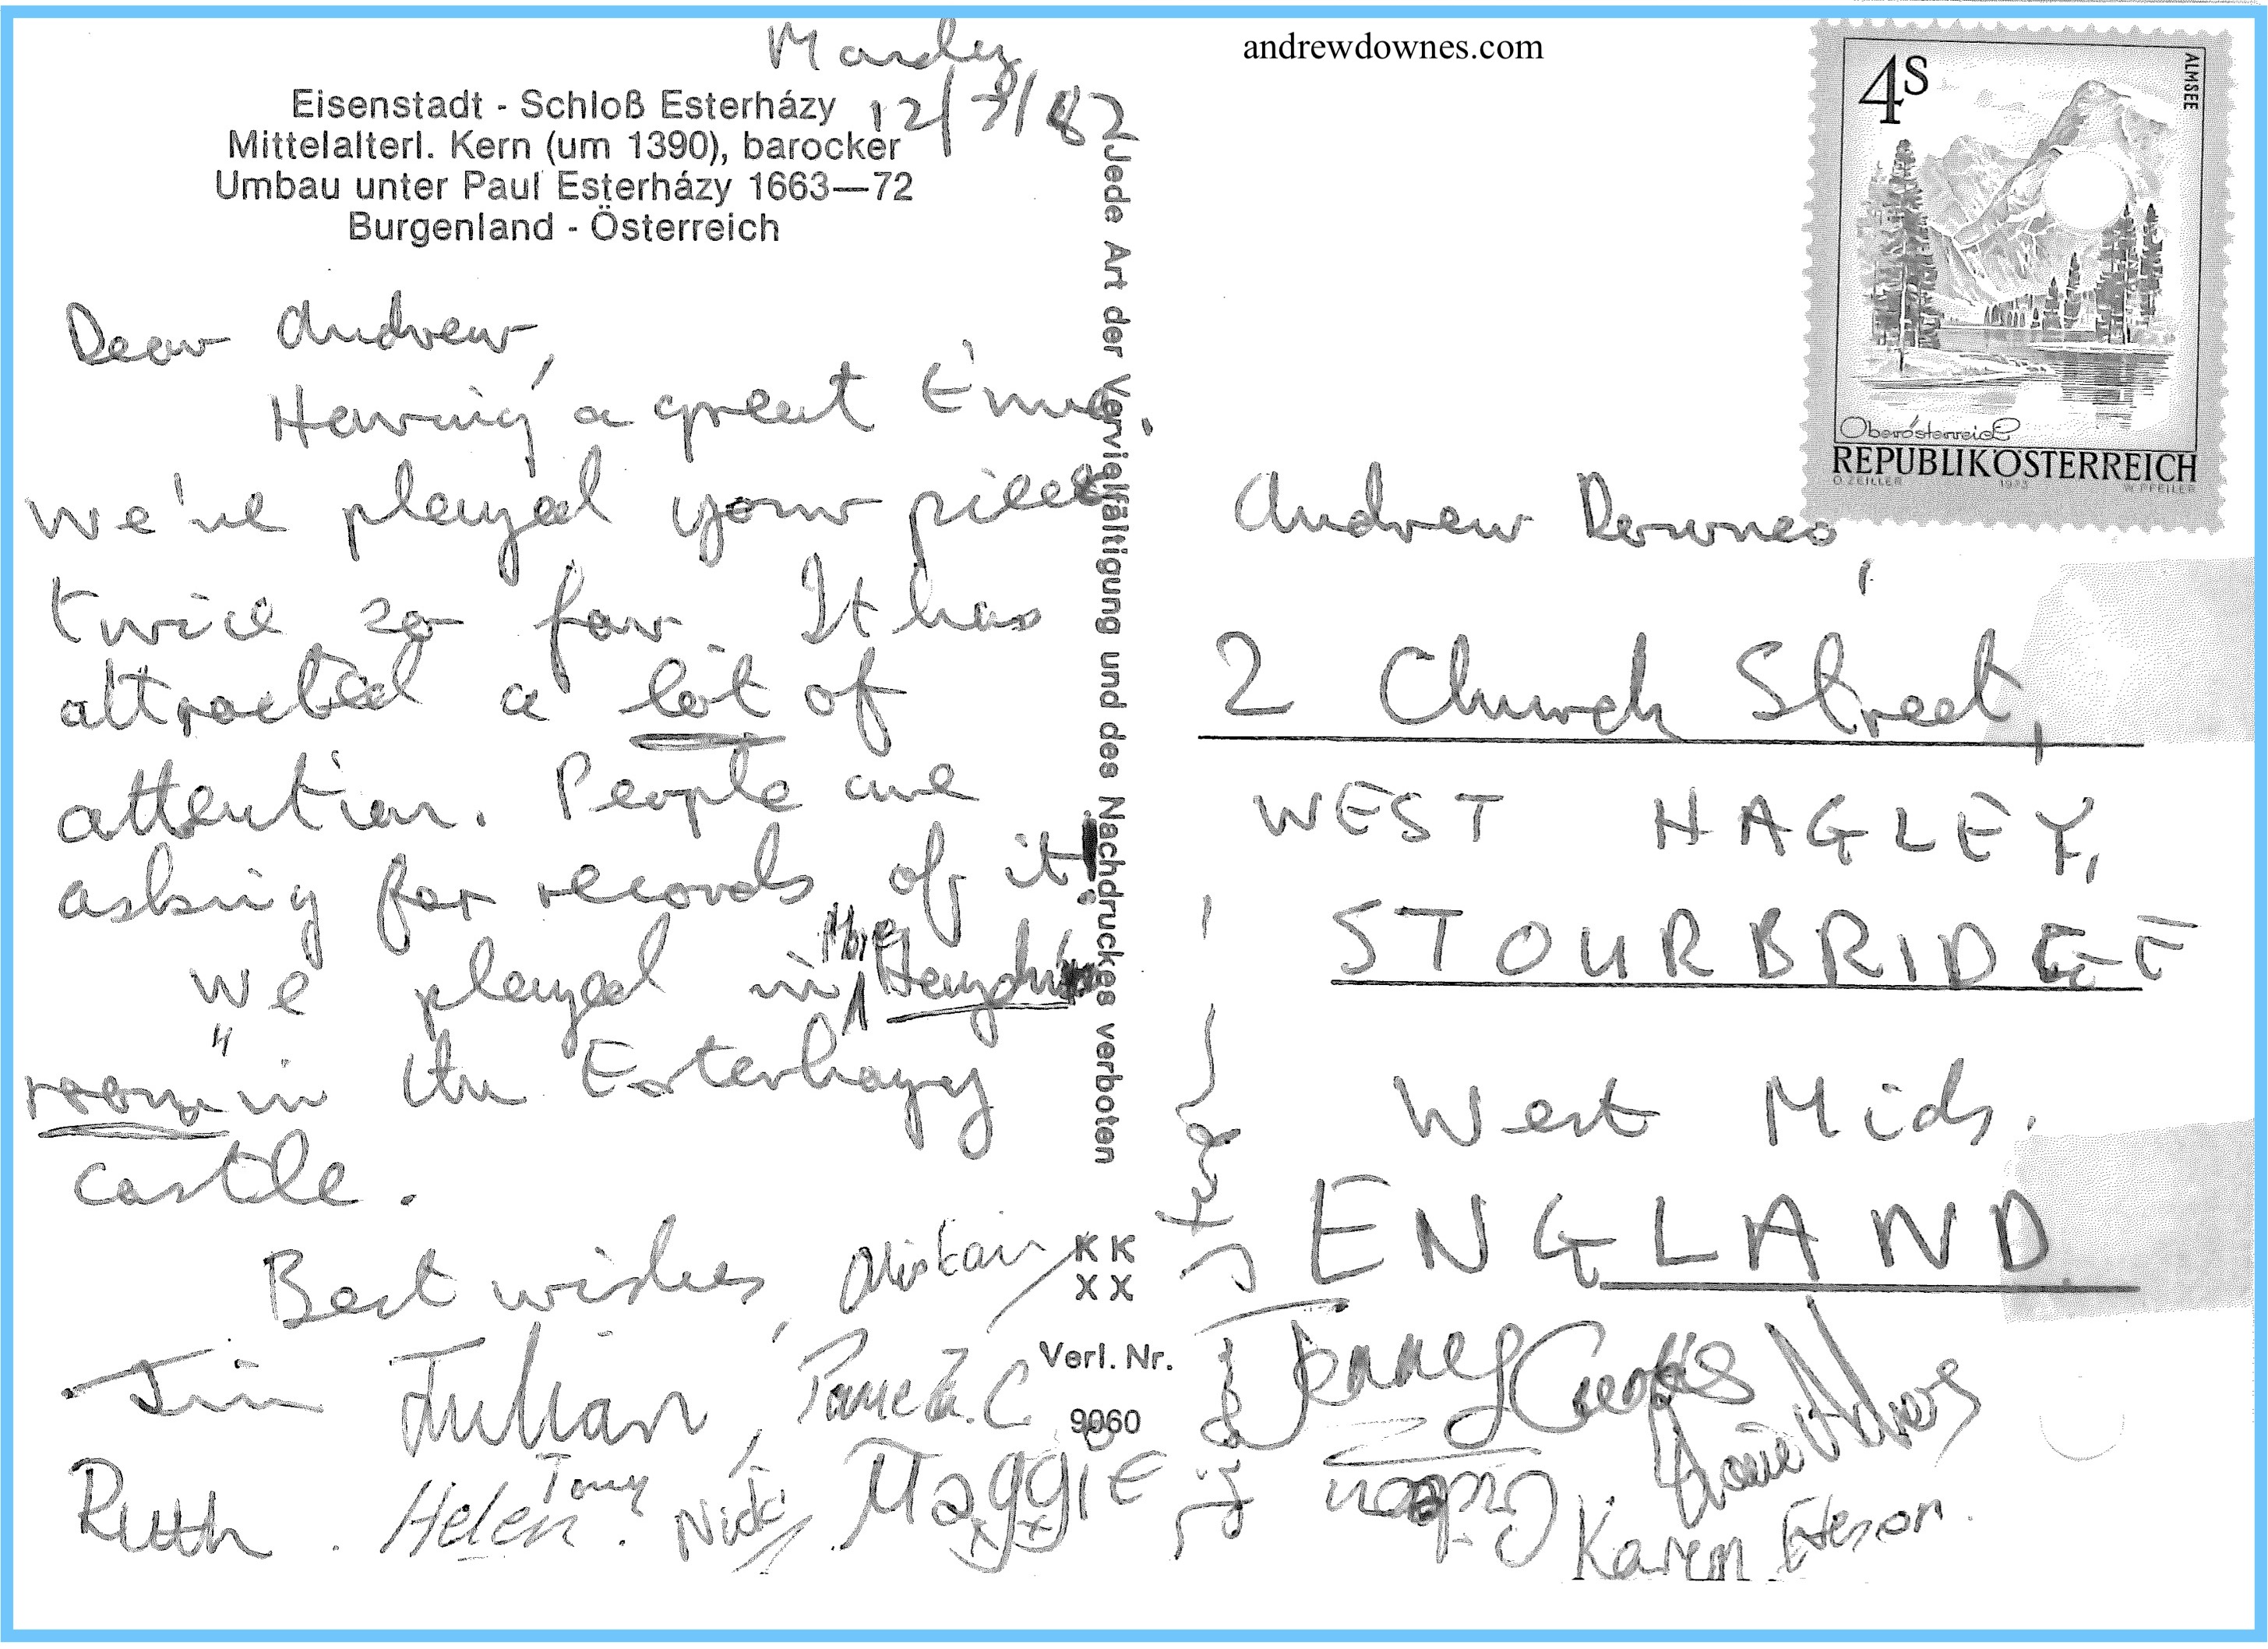 Monday
12/7/82
andrewdownes.com
Eisenstadt - Schloß Esterházy
Mittelalterl. Kern (um 1390), barocker
Umbau unter Paul Esterházy 1663—72
Burgenland - Österreich
Jede Art der Vervielfältigung und des Nachdruckes verboten
4S
ALMSEE
Oberösterreich
REPUBLIK ÖSTERREICH
O. ZEILLER 1973 W. PFEILER
Dear Andrew,
Having a great time.
We've played your piece
twice so far. It has
attracted a lot of
attention. People are
asking for records of it!
We played in the "Haydn
room" in the Esterhazy
castle.
Best wishes, Alistair
Jim Julian, Pamela. C
Ruth. Helen. Tony Nick Maggie xx
KK
XX
Verl. Nr.
9060
Andrew Downes,
2 Church Street,
WEST HAGLEY,
STOURBRIDGE
West Mids.
ENGLAND.
Jenney Curtis
Karen Eteson.